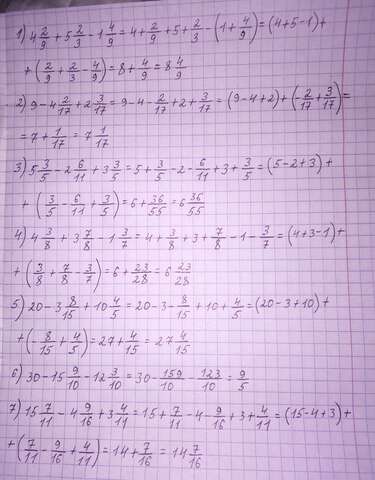 1) 4 2/9 + 5 2/3 - 1 4/9 = 4 + 2/9 + 5 + 2/3 - (1 + 4/9) = (4+5-1) +
+ (2/9 + 2/3 - 4/9) = 8 + 4/9 = 8 4/9
2) 9 - 4 2/17 + 2 3/17 = 9 - 4 - 2/17 + 2 + 3/17 = (9-4+2) + (2/17 + 3/17) =
= 7 + 1/17 = 7 1/17
3) 5 3/5 - 2 6/11 + 3 3/5 = 5 + 3/5 - 2 - 6/11 + 3 + 3/5 = (5-2+3) +
+ (3/5 - 6/11 + 3/5) = 6 + 36/55 = 6 36/55
4) 4 3/8 + 3 7/8 - 1 3/7 = 4 + 3/8 + 3 + 7/8 - 1 - 3/7 = (4+3-1) +
+ (3/8 + 7/8 - 3/7) = 6 + 23/28 = 6 23/28
5) 20 - 3 8/15 + 10 4/5 = 20 - 3 - 8/15 + 10 + 4/5 = (20-3+10) +
+ (- 8/15 + 4/5) = 27 + 4/15 = 27 4/15
6) 30 - 15 9/10 - 12 3/10 = 30 - 159/10 - 123/10 = 9/5
7) 15 7/11 - 4 9/16 + 3 4/11 = 15 + 7/11 - 4 - 9/16 + 3 + 4/11 = (15-4+3) +
+ (7/11 - 9/16 + 4/11) = 14 + 7/16 = 14 7/16